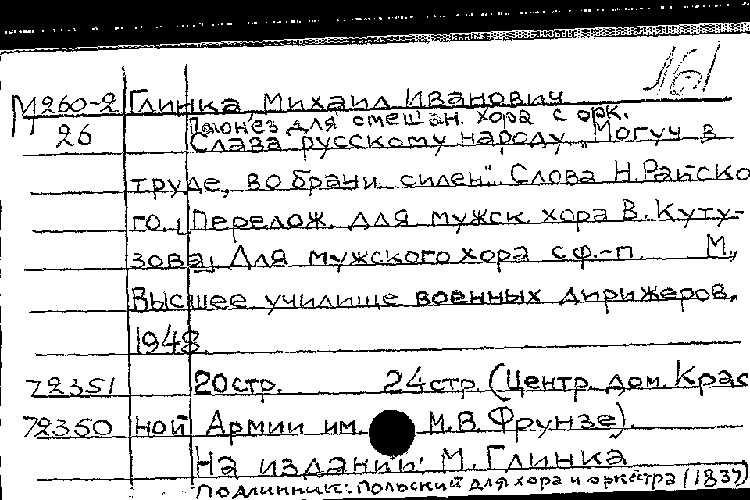 161
М260-2 Глинка Михаил Иванович
26 Полонез для смешан. хора с орк.
Слава русскому народу „Могуч в
труде, во брани силен". Слова Н. Райско
го. [Перелож. для мужск. хора В. Куту-
зова] Для мужского хора с ф.-п. М.,
Высшее училище военных дирижеров,
1948.
72351 20 стр. 24 стр. (Центр. дом. Крас
72350 ной Армии им. М.В. Фрунзе).
На издании: М. Глинка
Подлинник: Польский для хора и оркестра (1837)